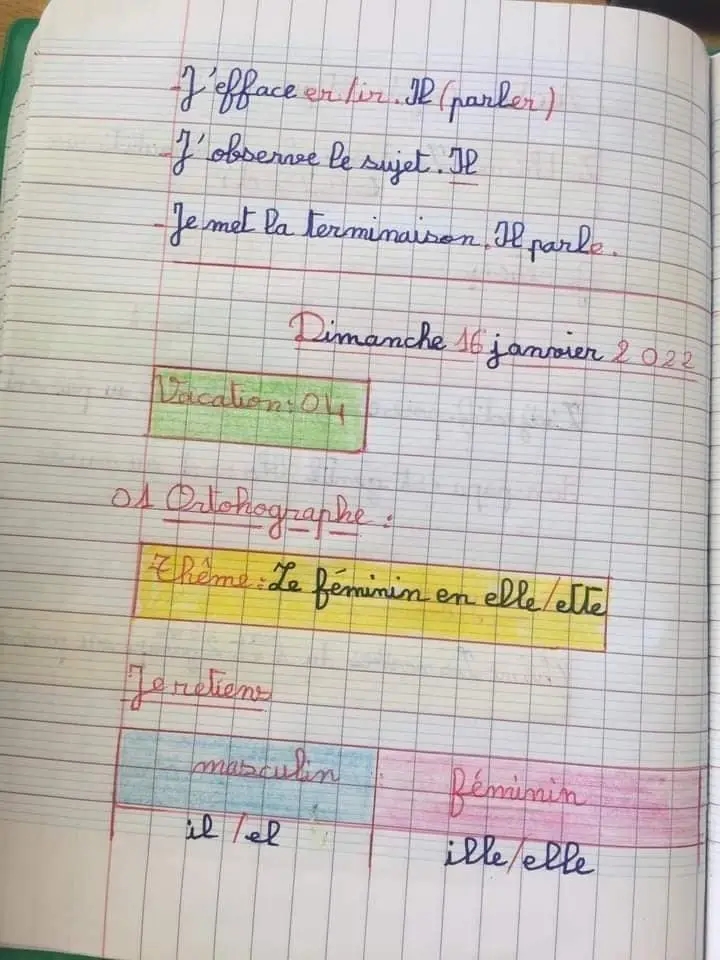 - J'efface er/ir. Il (parler)
- J'observe le sujet. Il
- Je met la terminaison. Il parle.
Dimanche 16 janvier 2022
Vacation: 04
01 Ortohographe :
Thême: Le féminin en elle/ette
Je retiens
masculin féminin
il/el ille/elle